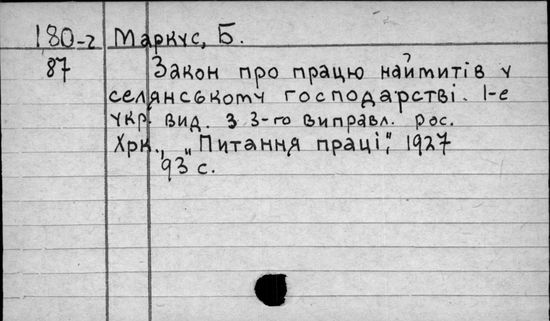 180-г Маркус, Б.
87 Закон про працю наймитів у
селянському господарстві. 1-е
укр. вид. з 3-го виправл. рос.
Хрк., „Питання праці", 1927
93 с.